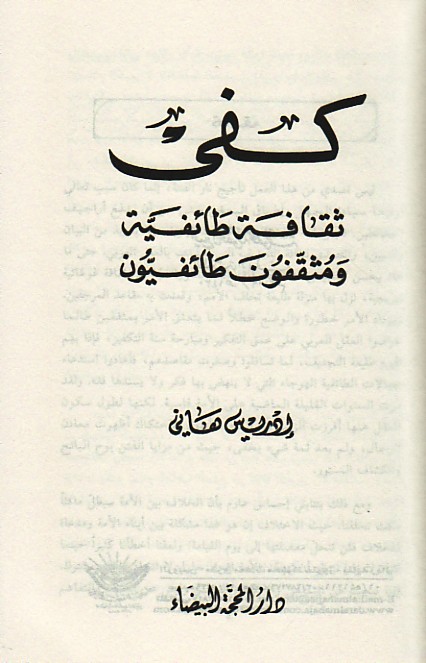 كفى
ثقافة طائفيّة
ومثقفون طائفيّون
إدريس هاني
دار المحجّة البيضاء